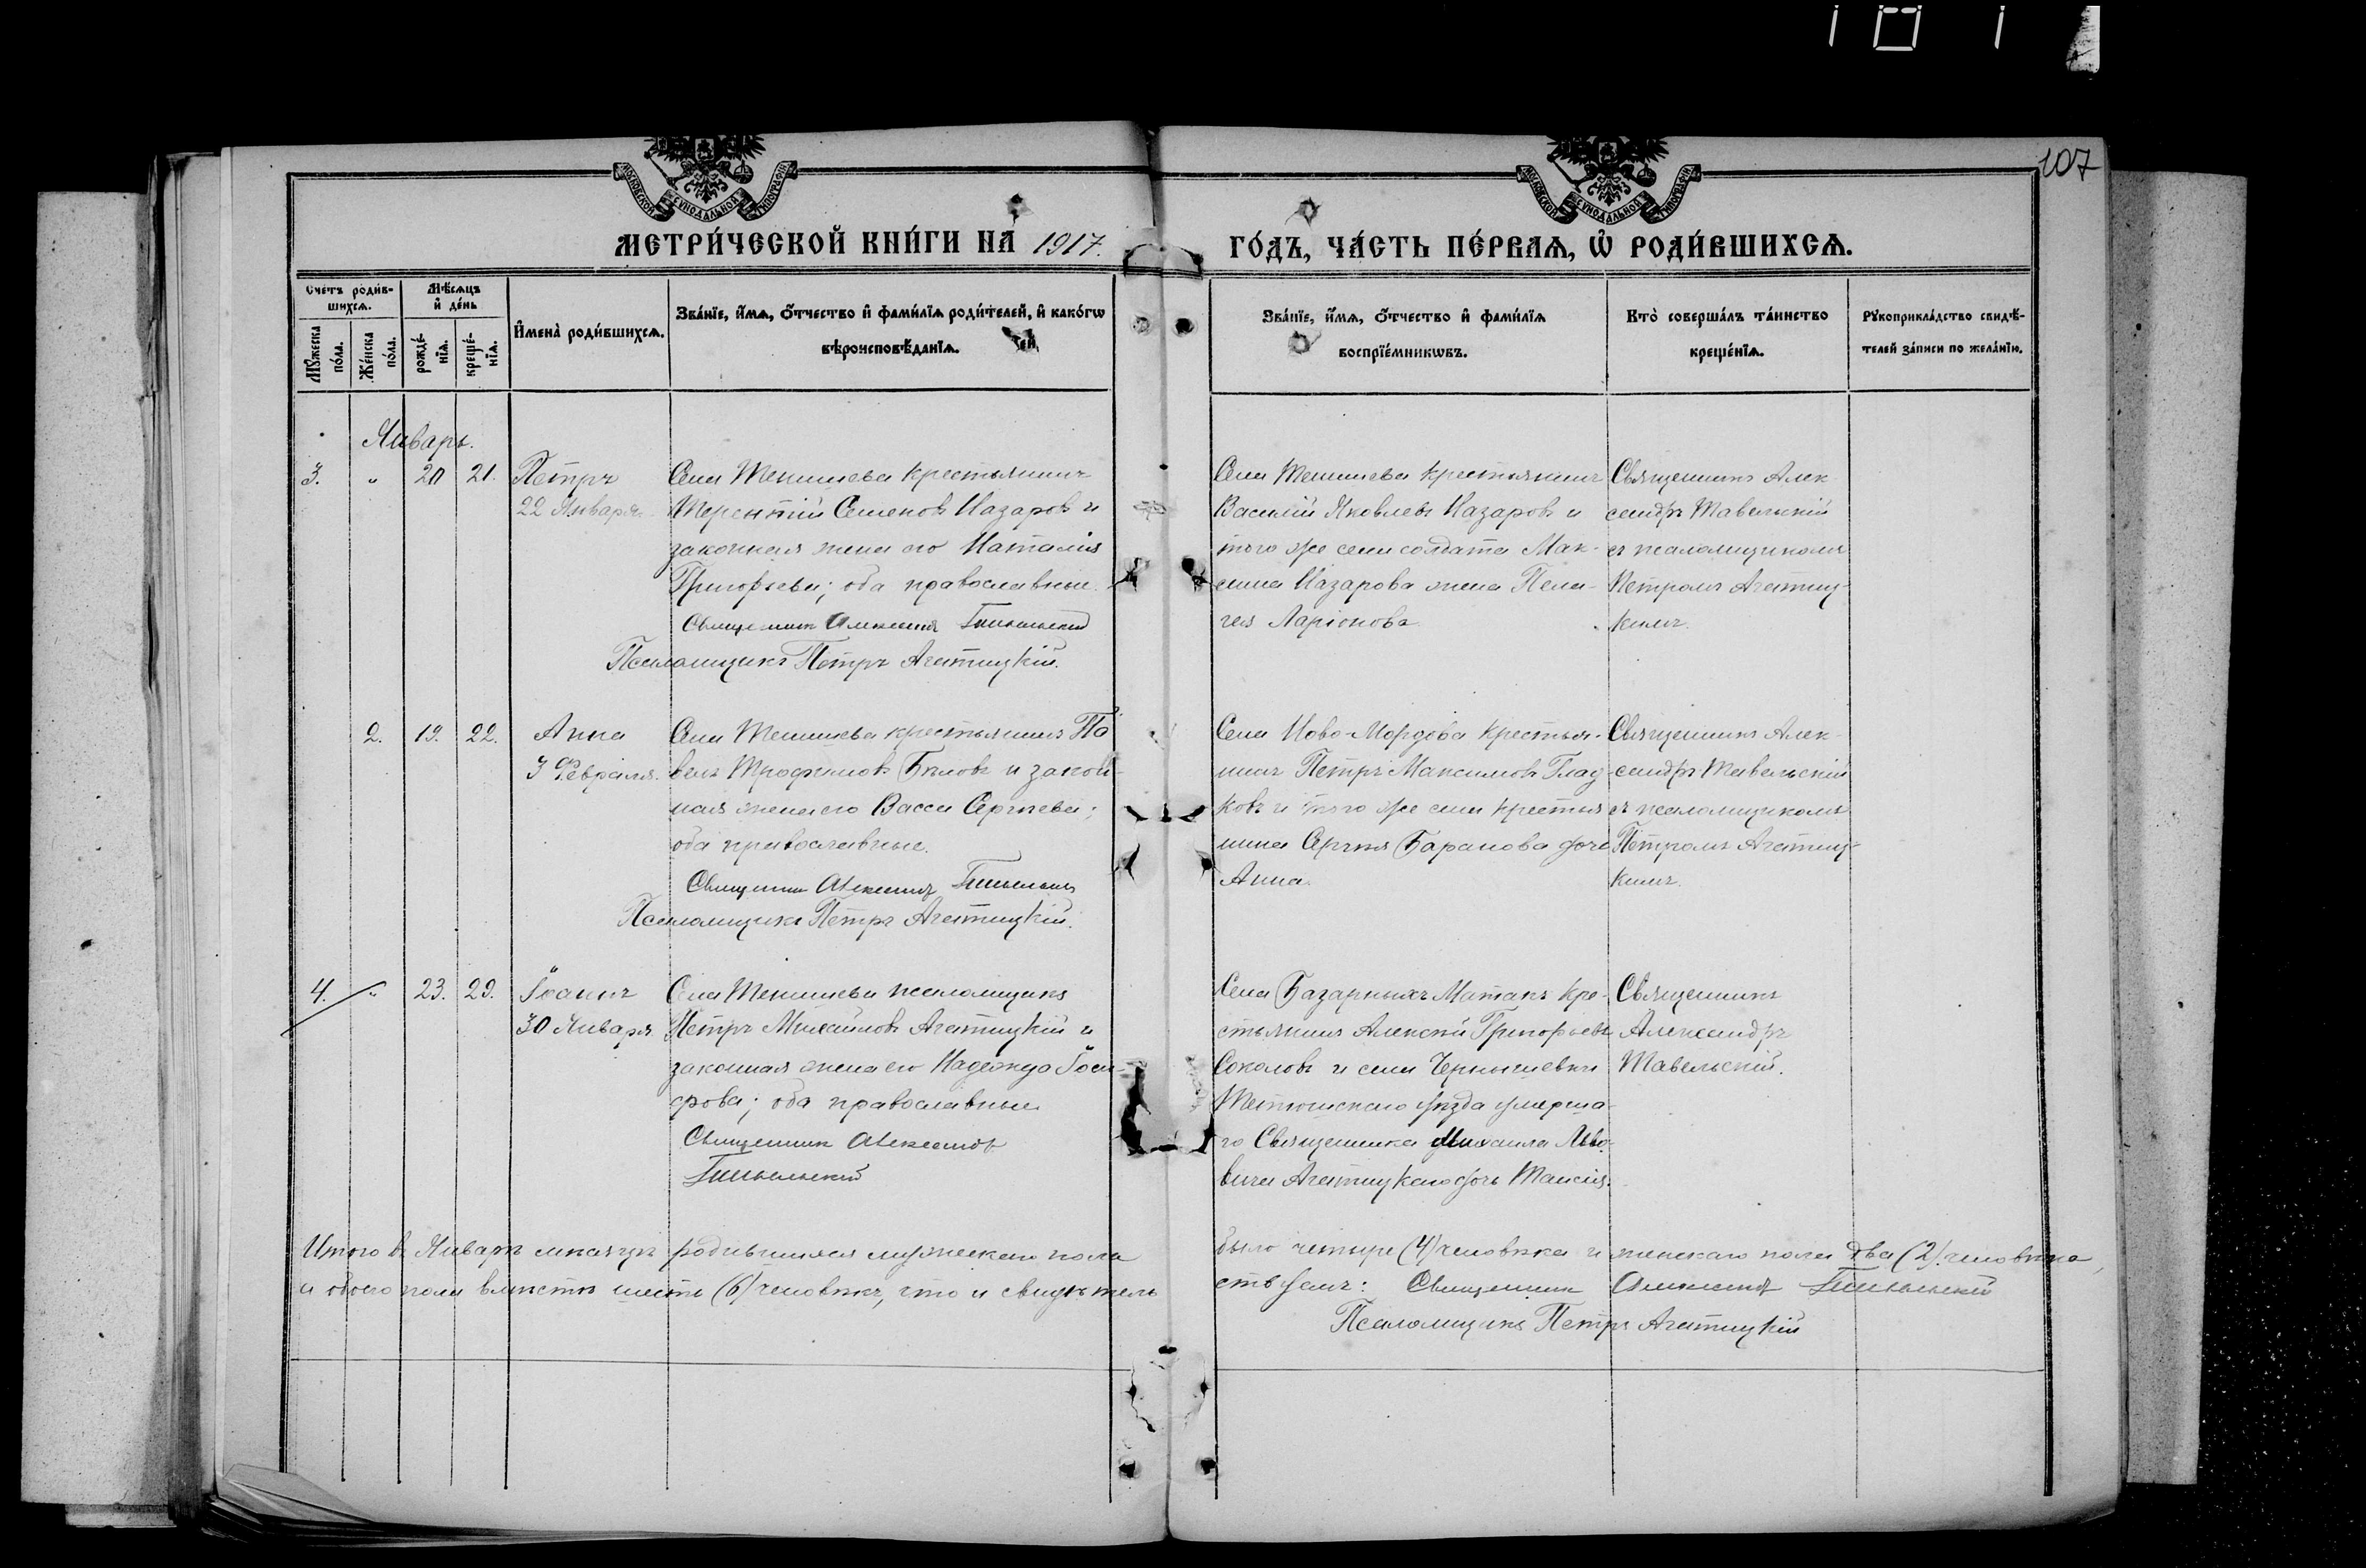 107
МОСКОВСКОЙ СУНОДАЛЬНОЙ ТИПОГРАФІИ
МОСКОВСКОЙ СУНОДАЛЬНОЙ ТИПОГРАФІИ
МЕТРИ́ЧЕСКОЙ КНИ́ГИ НА 1917.
ГО́ДЪ, ЧА́СТЬ ПЕ́РВАЯ, Ѡ҆ РОДИ́ВШИХСЯ.
Сче́тъ роди́в-
шихся.
Мѣ́сяцъ
и҆ де́нь
Мꙋ́жеска
по́ла.
Же́нска
по́ла.
рожде́-
нїѧ.
креще́-
нїѧ.
И҆мена̀ роди́вшихсѧ.
Зва́нїе, и҆́мѧ, ѻ҆́тчество и҆ фами́лїѧ роди́телей, и҆ како́гѡ
вѣроисповѣ́данїѧ.
Зва́нїе, и҆́мѧ, ѻ҆́тчество и҆ фами́лїѧ
воспрїе́мникѡвъ.
Кто̀ соверша́лъ та́инство
креще́нїѧ.
Рꙋкоприкла́дство свидѣ́-
телей за́писи по жела́нїю.
Январь.
3. " 20 21. Петръ
22 Января.
Села крестьянинъ
Терентій Семеновъ Назаровъ и
законная жена его Наталія
Григорьева; оба православные.
Священникъ Александръ Тавельскій
Псаломщикъ Петръ Агатицкій.
Села крестьянинъ
Василій Яковлевъ Назаровъ и
того же села солдата Мак-
сима Назарова жена Пела-
гея Ларіонова.
Священникъ Алек-
сандръ Тавельскій
съ псаломщикомъ
Петромъ Агатиц-
кимъ.
2. 19. 22. Анна
3 Февраля.
Села крестьянинъ Па
велъ Трофимовъ Бѣловъ и закон-
ная жена его Васса Сергѣева;
оба православные.
Священникъ Александръ Тавельскій
Псаломщикъ Петръ Агатицкій.
Села Ново-Мордова крестья-
нинъ Петръ Максимовъ Глад
ковъ и того же села крестья
нина Сергѣя Баранова дочь
Анна.
Священникъ Алек-
сандръ Тавельскій
съ псаломщикомъ
Петромъ Агатиц-
кимъ.
4. " 23. 29. Іоаннъ
30 Января
Села псаломщикъ
Петръ Михайловъ Агатицкій и
законная жена его Надежда
оба православные.
Священникъ Александръ
Тавельскій
Села Базарныхъ Матакъ кре-
стьянинъ Алексѣй Григорьевъ
Соколовъ и села
Тетюшскаго уѣзда умерша-
го Священника Михаила Льво-
вича Агатицкаго дочь Таисія.
Священникъ
Александръ
Тавельскій.
Итого въ Январѣ мѣсяцѣ родившихся мужескаго пола
было четыре (4) человѣка и женскаго пола два (2) человѣка,
а обоего пола вмѣстѣ шесть (6) человѣкъ, что и свидѣтель
ствуемъ: Священникъ Александръ Тавельскій
Псаломщикъ Петръ Агатицкій